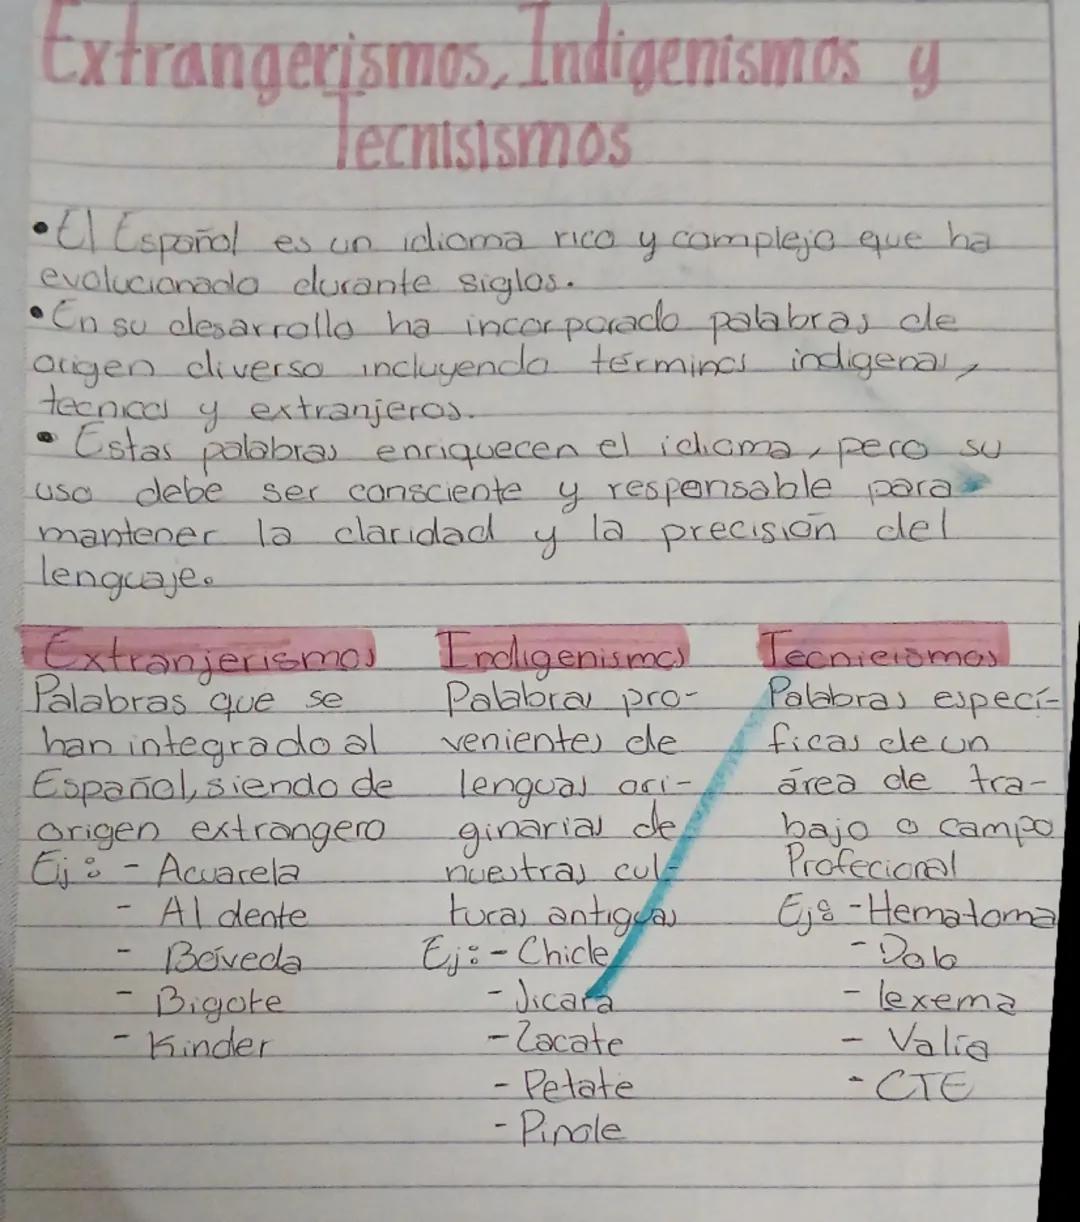 Extrangerismos, Indigenismos y
Tecnisismos
• El Español es un idioma rico y complejo que ha
evolucionado durante siglos.
• En su desarrollo ha incorporado palabras de
origen diverso incluyendo términos indigenas,
tecnicos y extranjeros.
• Estas palabras enriquecen el idioma, pero su
uso debe ser consciente y responsable para
mantener la claridad y la precisión del
lenguaje.
Extranjerismos
Palabras que se
han integrado al
Español, siendo de
origen extrangero
Ej: - Acuarela
- Al dente
- Bóveda
- Bigote
- Kinder
Indigenismos
Palabras pro-
venientes de
lenguas ori-
ginarias de
nuestras cul-
turas antiguas
Ej: - Chicle
- Jicara
- Zacate
- Petate
- Pinole
Tecnicismos
Palabras especí-
ficas de un
área de tra-
bajo o campo
Profecional
Ej: - Hematoma
- lexema
- CTE